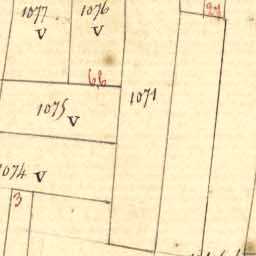 1077 1076
V V
66
1075 V
1071
1074 V
3